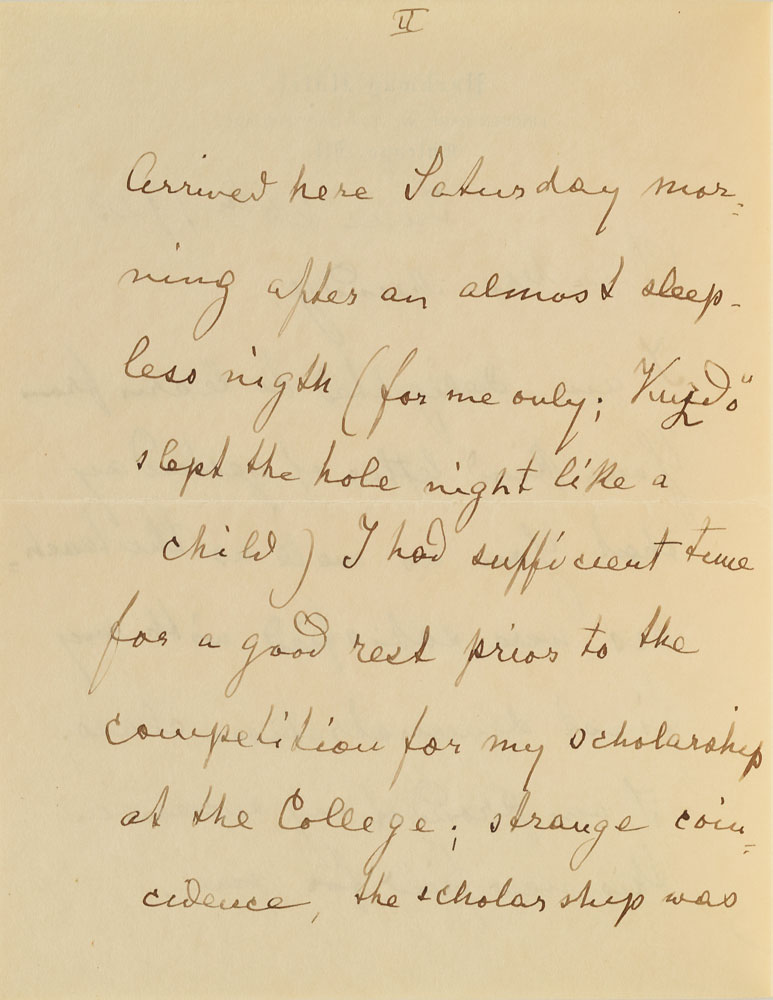 II
Arrived here Saturday mor=
ning after an almost sleep-
less nigth (for me only;
slept the hole night like a
child) I had sufficient time
for a good rest prior to the
competition for my scholarship
at the College; strange coin=
cidence, the scholarship was